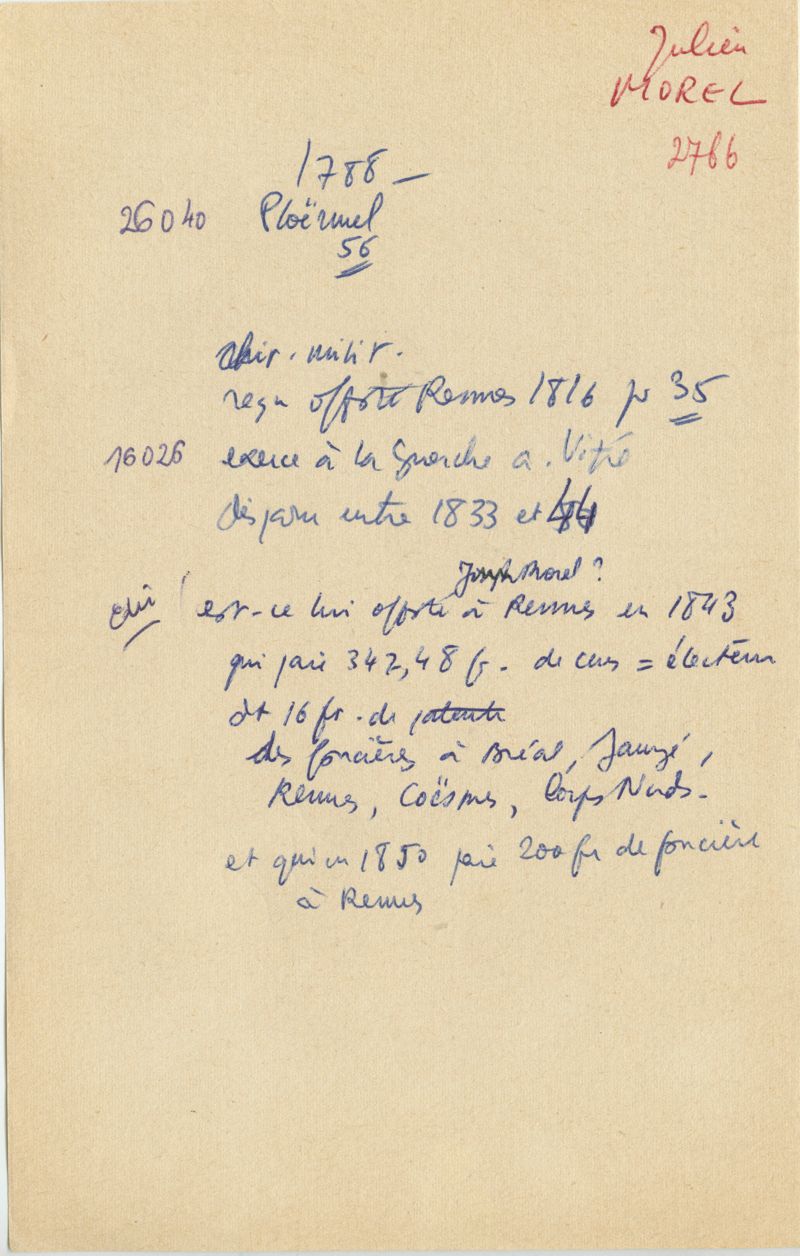 Julien
MOREL
2766
1788 –
26040 Ploërmel
56
chir. milit.
reçu offsté Rennes 1816 pr 35
16026 exerce à la Guerche a. Vitré
disparu entre 1833 et 44
Joseph Morel ?
est-ce lui offsté à Rennes en 1843
qui paie 342,48 f. de cens = électeur
dt 16 fr. de patente
des foncières à Bréal, Janzé,
Rennes, Coësmes, Corps Nuds.
et qui en 1850 paie 200 fr de foncière
à Rennes